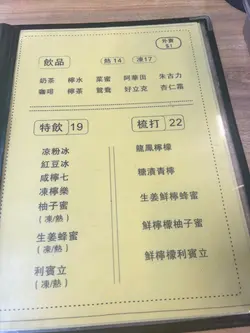 外賣
$1
飲品 熱14 凍17
奶茶 檸水 菜蜜 阿華田 朱古力
咖啡 檸茶 鴛鴦 好立克 杏仁霜
特飲 19
涼粉冰
紅豆冰
咸檸七
凍檸樂
柚子蜜
(凍/熱)
生姜蜂蜜
(凍/熱)
利賓立
(凍/熱)
梳打 22
龍鳳檸檬
糖漬青檸
生姜鮮檸蜂蜜
鮮檸檬柚子蜜
鮮檸檬利賓立